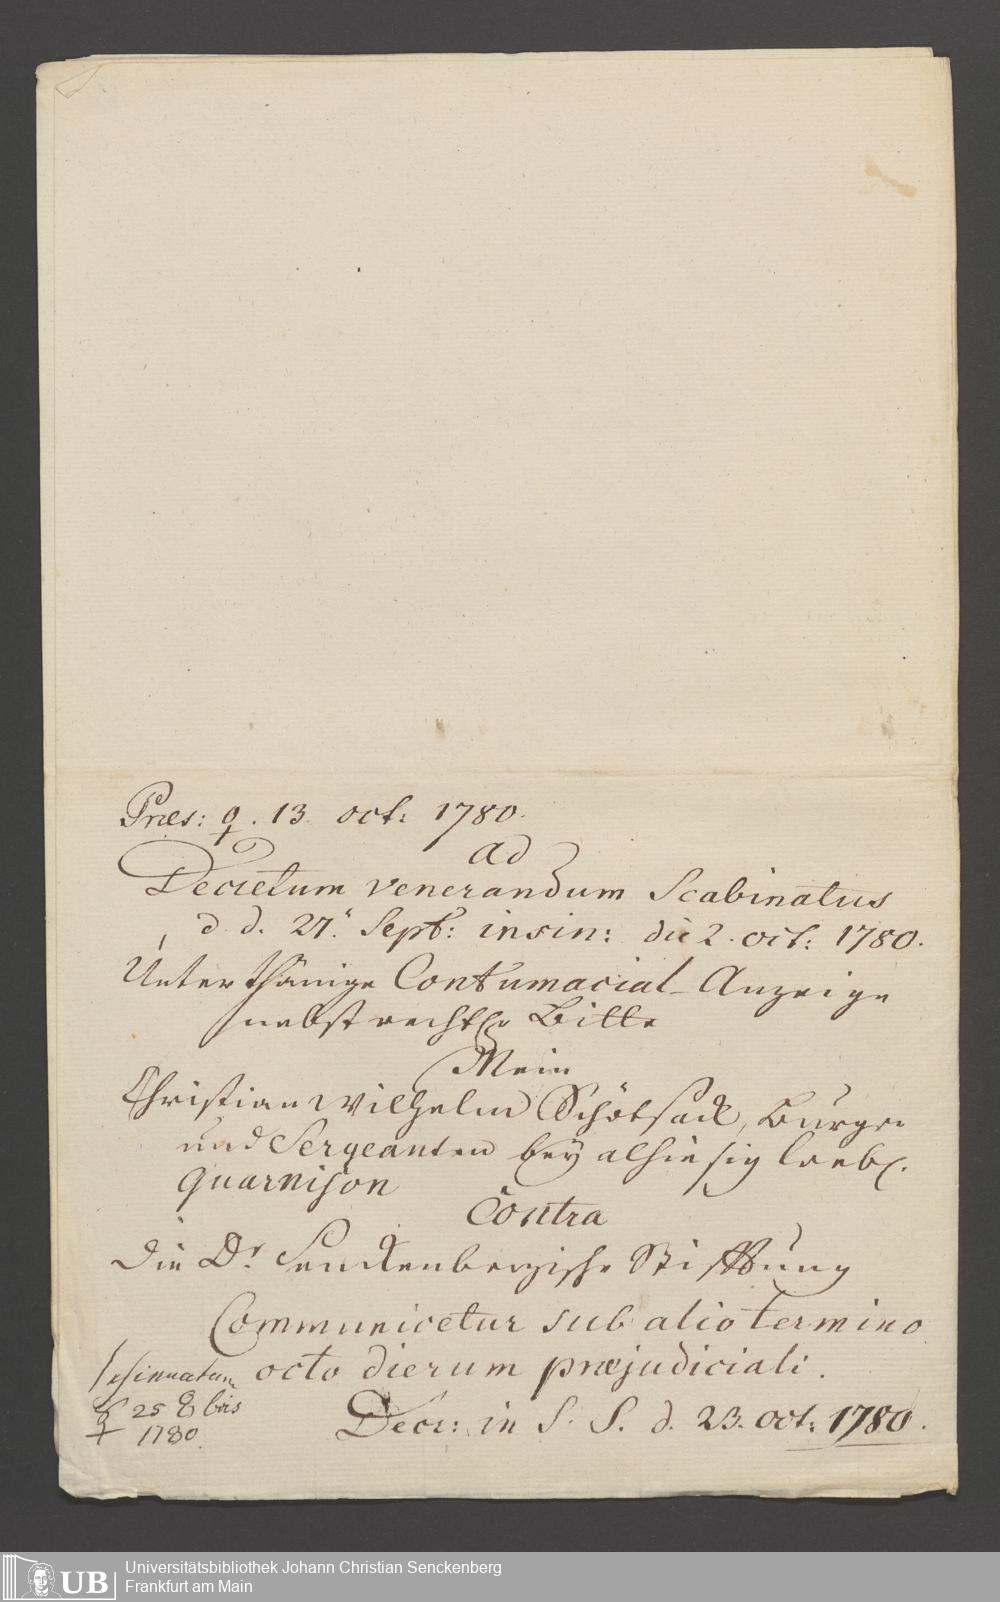 Præs: ♀. 13 oct: 1780.
ad
Decretum venerandum Scabinatus
d. d. 27. Sept: insin: die 2. oct: 1780.
Unterthänige Contumacial-Anzeige
nebst rechtl. Bitte
Mein
Christian Wilhelm Schötsack, Burger
und Sergeanten bey alhiesig Loebl.
Guarnison
Contra
Die Dr. Senckenbergische Stifftung
Communicetur sub alio termino
octo dierum præjudiciali.
Decr: in S. S. d. 23. oct: 1780.
Insinuatum
☿ 25 8bris
1780.
UB Universitätsbibliothek Johann Christian Senckenberg
Frankfurt am Main